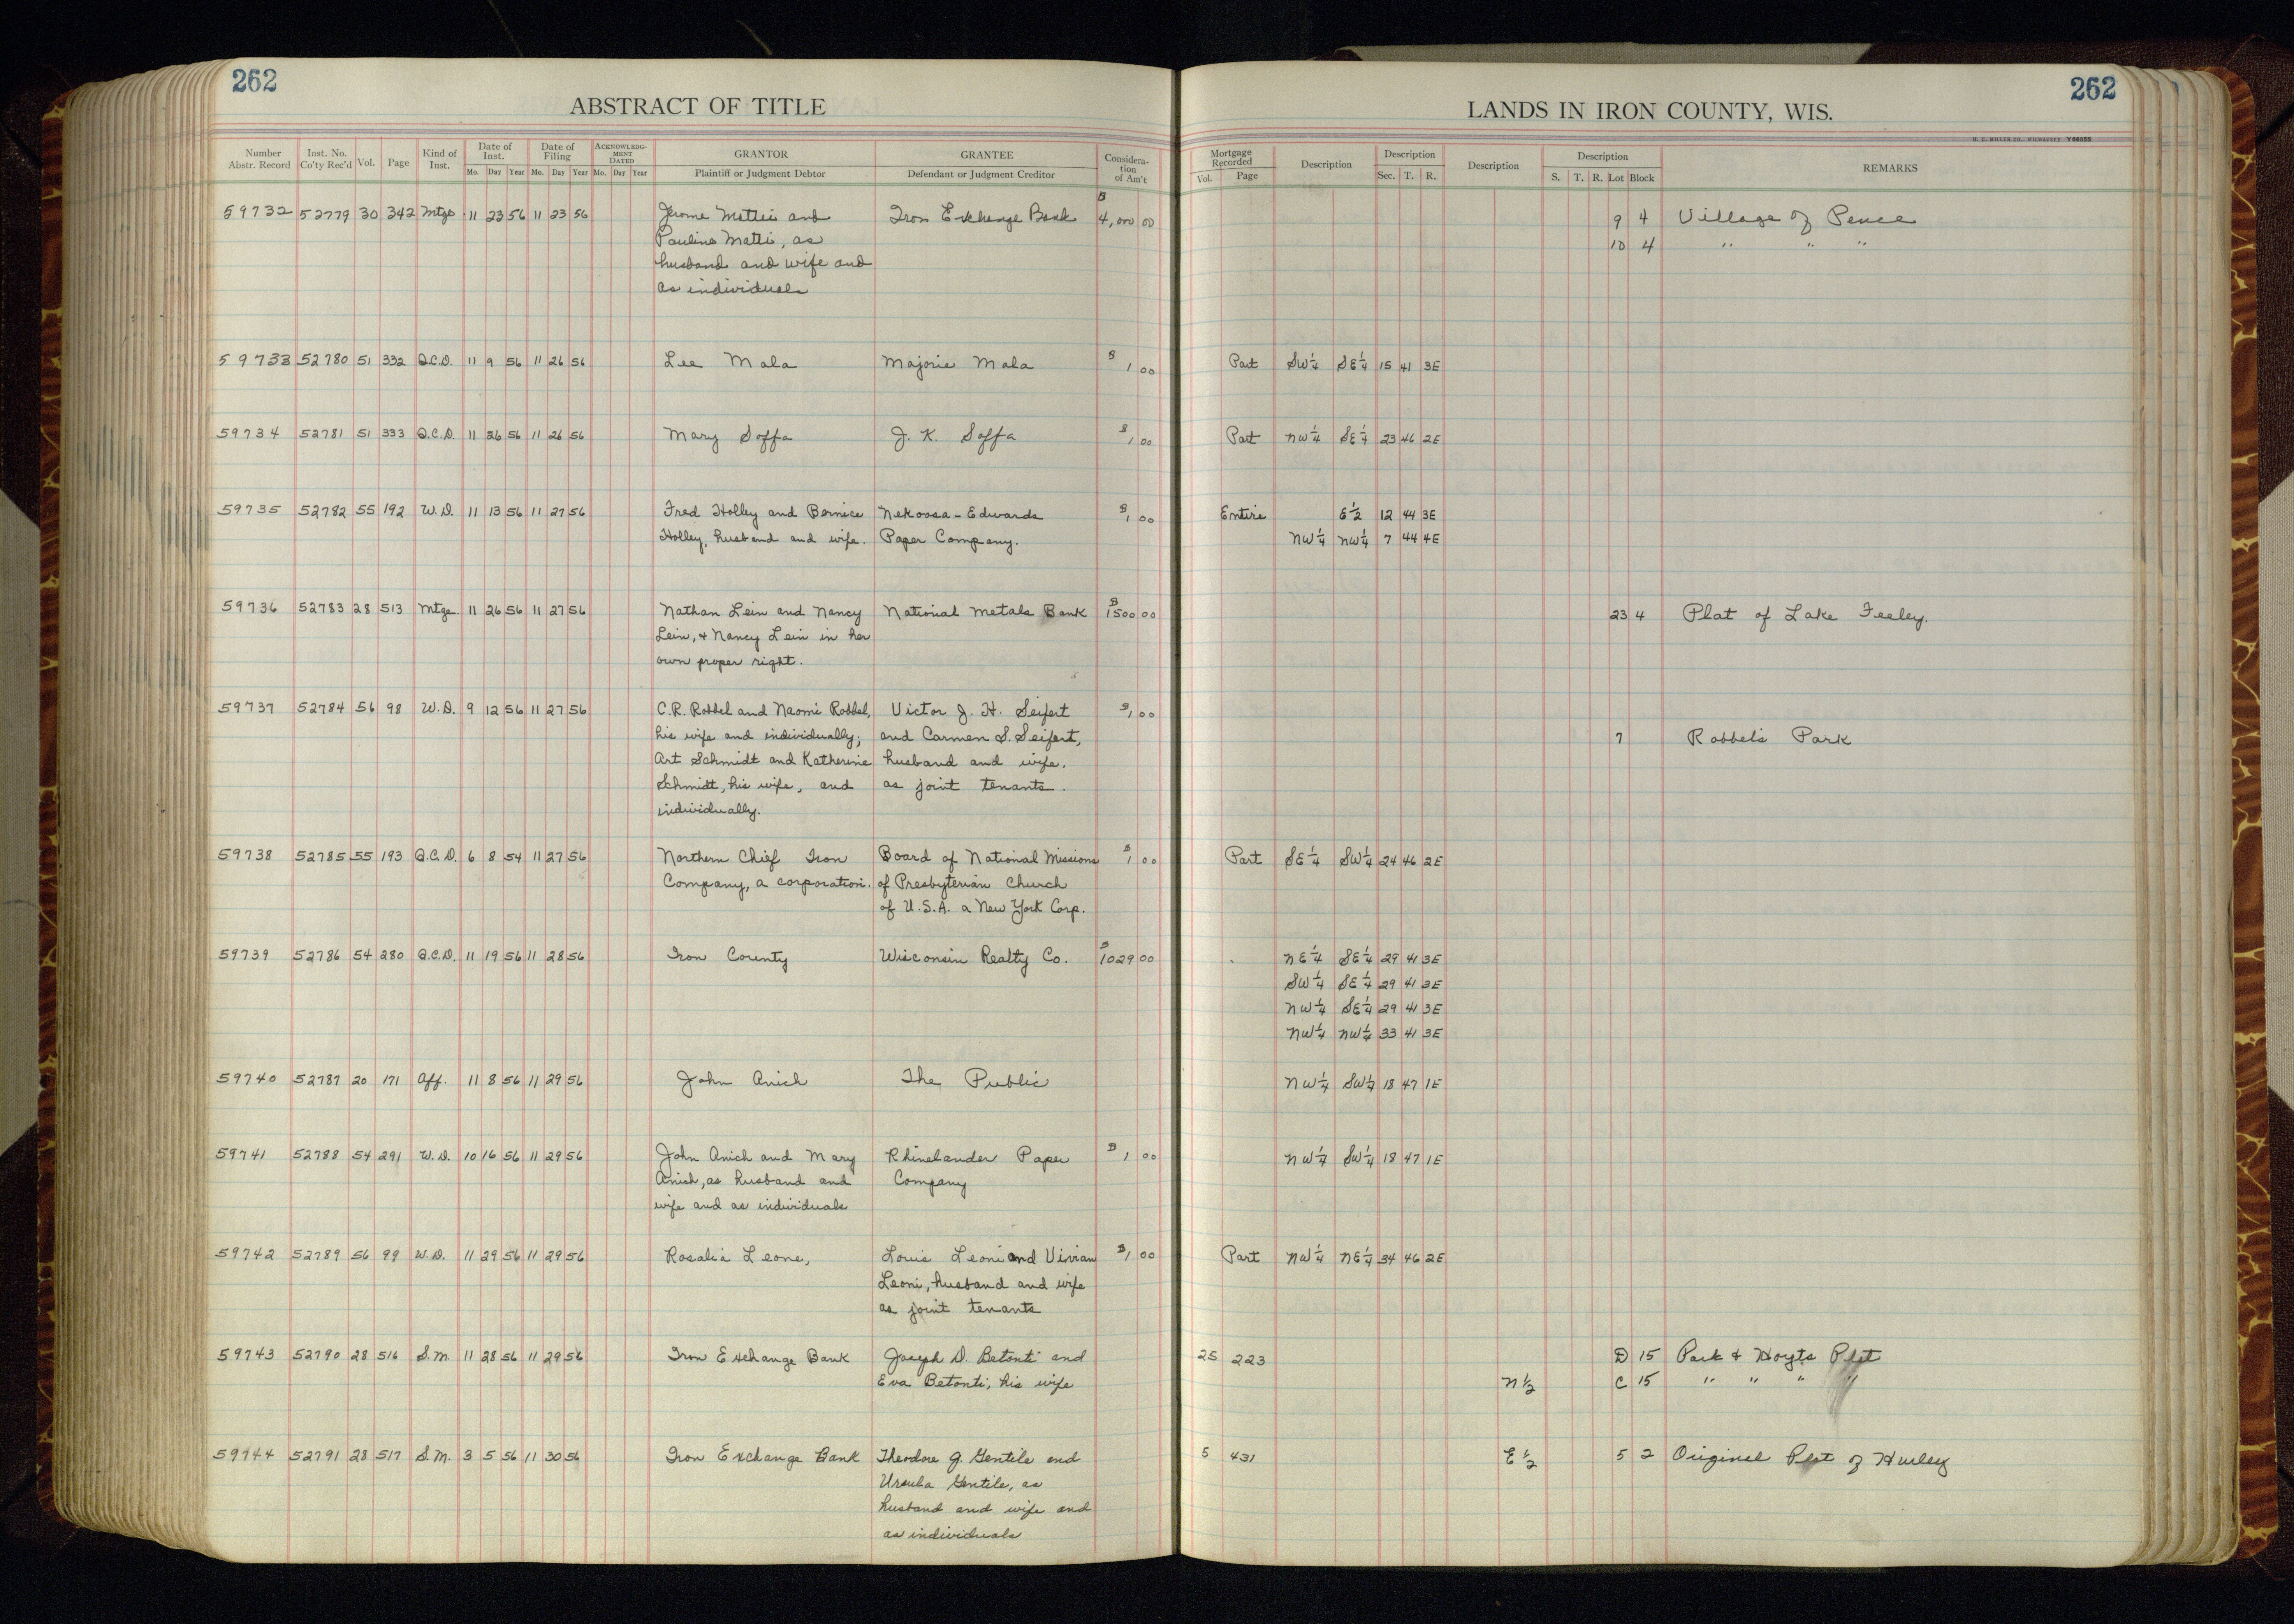 262
262
ABSTRACT OF TITLE
LANDS IN IRON COUNTY, WIS.
H. C. MILLER CO., MILWAUKEE Y66055
Number Abstr. Record Inst. No. Co'ty Rec'd Vol. Page Kind of Inst. Date of Inst. Mo. Day Year Date of Filing Mo. Day Year ACKNOWLEDG-MENT DATED Mo. Day Year GRANTOR Plaintiff or Judgment Debtor GRANTEE Defendant or Judgment Creditor Considera-tion of Am't
Mortgage Recorded Vol. Page Description Description Sec. T. R. Description Description S. T. R. Lot Block REMARKS
59732 52779 30 342 Mtge 11 23 56 11 23 56 Jerome Mattei and Iron Exchange Bank $4,000 00 9 4 Village of Pence
Pauline Mattei, as 10 4 " " "
husband and wife and
as individuals
59733 52780 51 332 Q.C.D. 11 9 56 11 26 56 Lee Mala Majorie Mala $1 00 Part SW¼ SE¼ 15 41 3E
59734 52781 51 333 Q.C.D. 11 26 56 11 26 56 Mary Soffa J. K. Soffa $1 00 Part NW¼ SE¼ 23 46 2E
59735 52782 55 192 W.D. 11 13 56 11 27 56 Fred Holley and Bernice Nekoosa-Edwards $1 00 Entire E½ 12 44 3E
Holley, husband and wife. Paper Company. NW¼ NW¼ 7 44 4E
59736 52783 28 513 Mtge. 11 26 56 11 27 56 Nathan Lein and Nancy National Metals Bank $1500 00 23 4 Plat of Lake Feeley.
Lein, + Nancy Lein in her
own proper right.
59737 52784 56 98 W.D. 9 12 56 11 27 56 C.R. Robbel and Naomi Robbel, Victor J. H. Seifert $1 00
his wife and individually; and Carmen S. Seifert, 7 Robbel's Park
Art Schmidt and Katherine husband and wife.
Schmidt, his wife, and as joint tenants.
individually.
59738 52785 55 193 Q.C.D. 6 8 54 11 27 56 Northern Chief Iron Board of National Missions $1 00 Part SE¼ SW¼ 24 46 2E
Company, a corporation. of Presbyterian Church
of U.S.A. a New York Corp.
59739 52786 54 280 Q.C.D. 11 19 56 11 28 56 Iron County Wisconsin Realty Co. $1029 00 NE¼ SE¼ 29 41 3E
SW¼ SE¼ 29 41 3E
NW¼ SE¼ 29 41 3E
NW¼ NW¼ 33 41 3E
59740 52787 20 171 Aff. 11 8 56 11 29 56 John Anich The Public NW¼ SW¼ 18 47 1E
59741 52788 54 291 W.D. 10 16 56 11 29 56 John Anich and Mary Rhinelander Paper $1 00 NW¼ SW¼ 18 47 1E
Anich, as husband and Company
wife and as individuals
59742 52789 56 99 W.D. 11 29 56 11 29 56 Rosalia Leone, Louis Leoni and Vivian $1 00 Part NW¼ NE¼ 34 46 2E
Leoni, husband and wife
as joint tenants
59743 52790 28 516 S.M. 11 28 56 11 29 56 Iron Exchange Bank Joseph D. Betonti and 25 223 D 15 Park + Hoyts Plat
Eva Betonti, his wife N½ C 15 " " " "
59744 52791 28 517 S.M. 3 5 56 11 30 56 Iron Exchange Bank Theodore J. Gentile and 5 431 E½ 5 2 Original Plat of Hurley
Ursula Gentile, as
husband and wife and
as individuals